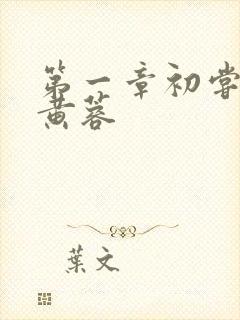 第一章初尝
黄蓉
葉文